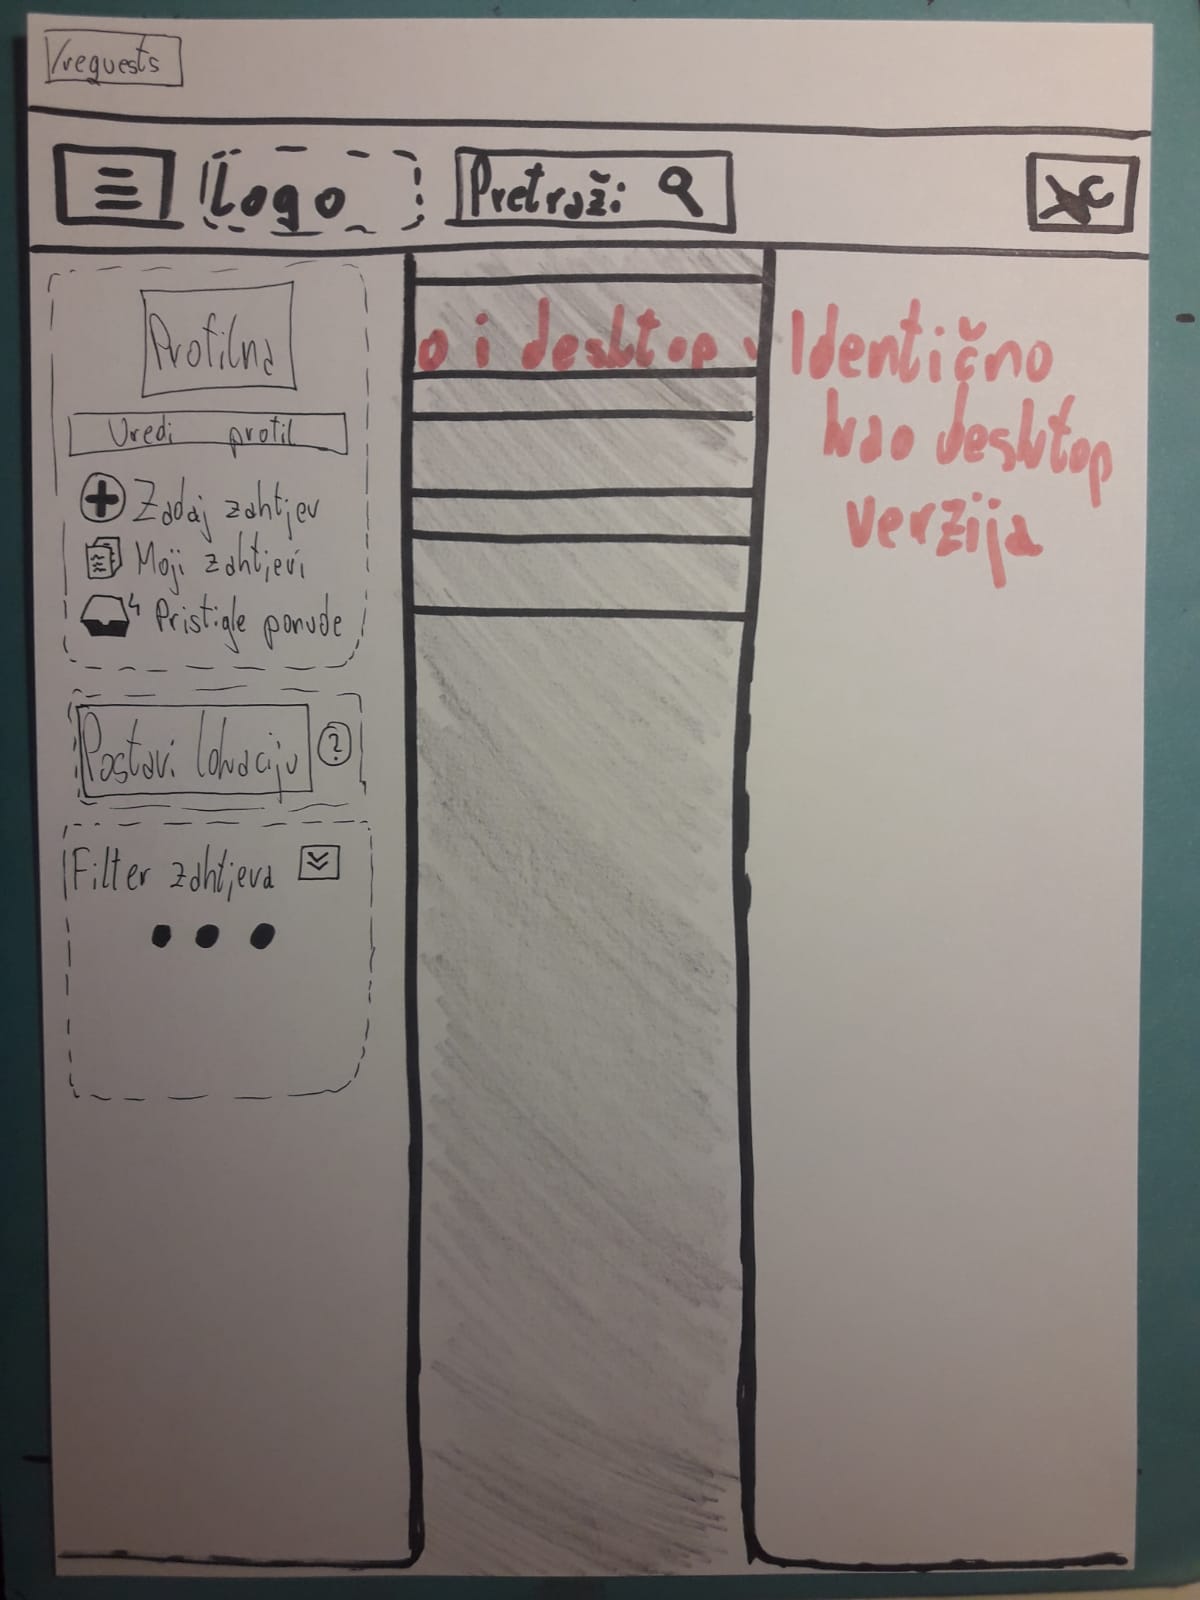 /requests
Logo
Pretraži
Profilna
Uredi profil
Zadaj zahtjev
Moji zahtjevi
4 Pristigle ponude
Postavi lokaciju ?
Filter zahtjeva
o i desktop v
Identično
kao desktop
verzija